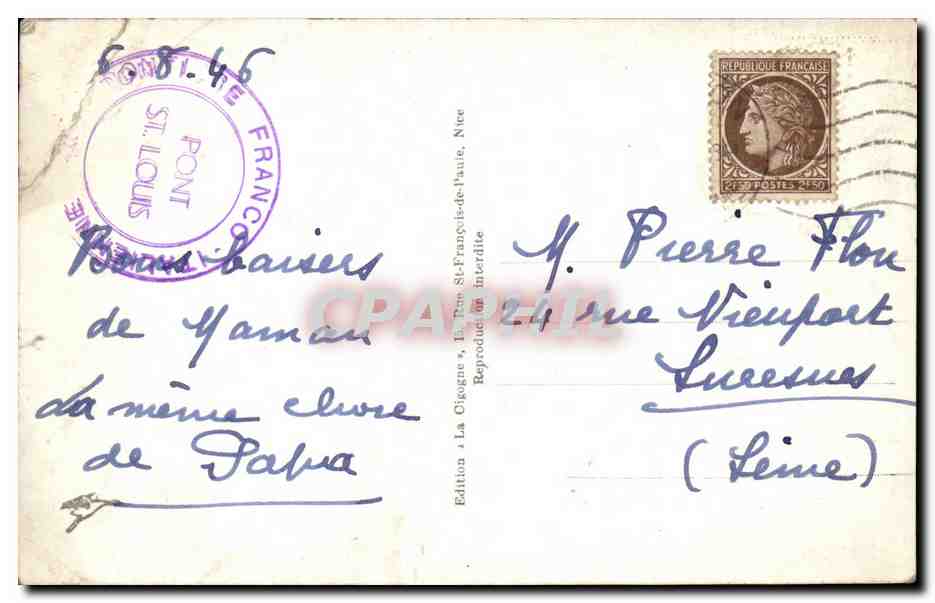 6.8.46
FRONTIERE FRANCO ITALIENNE
PONT
ST. LOUIS
Bons baisers
de Maman
La même chose
de Papa
Edition « La Cigogne », 15, Rue St-François-de-Paule, Nice
Reproduction interdite
REPUBLIQUE FRANÇAISE
2F50 POSTES 2F50
M. Pierre Flon
24 rue Nieuport
Suresnes
(Seine)
CPAPHIL